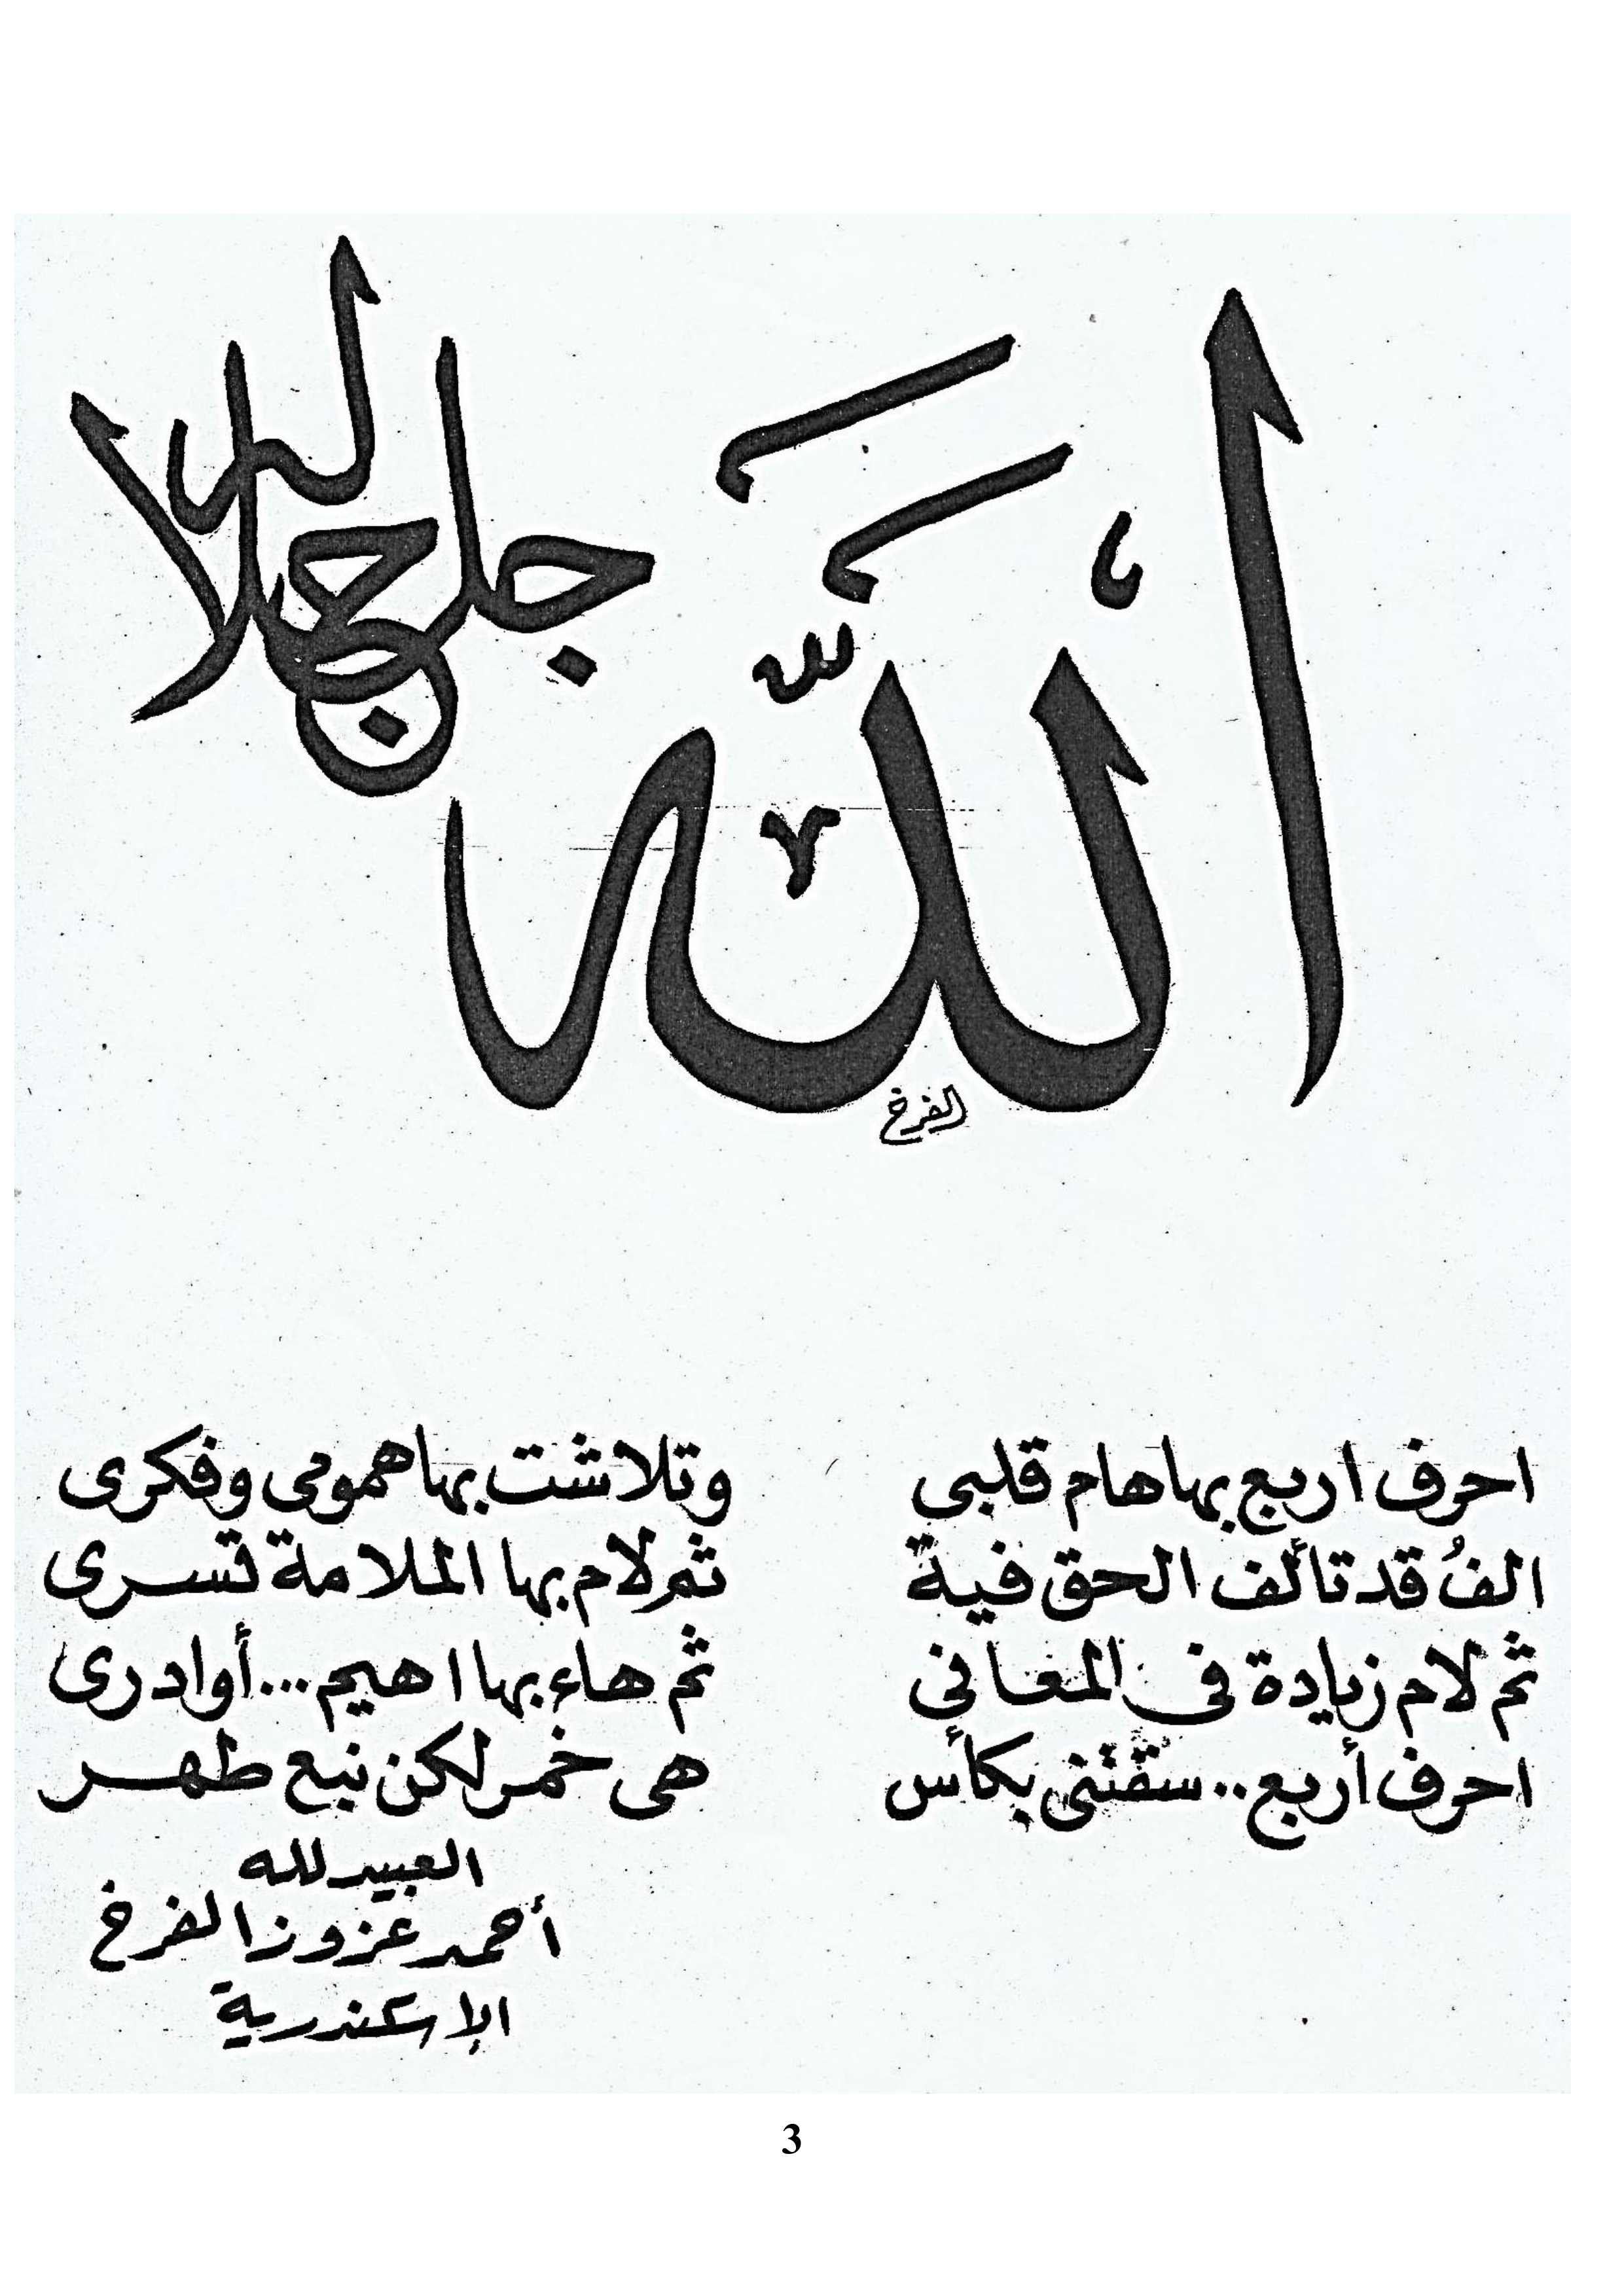 اللّٰه جل جلاله
الفرخ
احرف اربع بها هام قلبى وتلاشت بها همومى وفكرى
الفُ قد تألف الحق فية ثم لام بها الملامة تسرى
ثم لام زيادة فى المعانى ثم هاء بها اهيم... أوادرى
احرف أربع.. سقتنى بكأس هى خمر لكن نبع طهر
العبيد لله
أحمد عزوز الفرخ
الإسكندرية
3